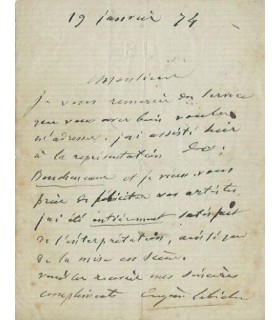 19 janvier 74
Monsieur
je vous remercie du service
que vous avez bien voulu
m'adresser. j'ai assisté hier
à la représentation
et je vous
prie de féliciter vos artistes
j'ai été entièrement satisfait
de l'interprétation, ainsi que
de la mise en scène.
veuillez recevoir mes sincères
compliments Eugène Labiche